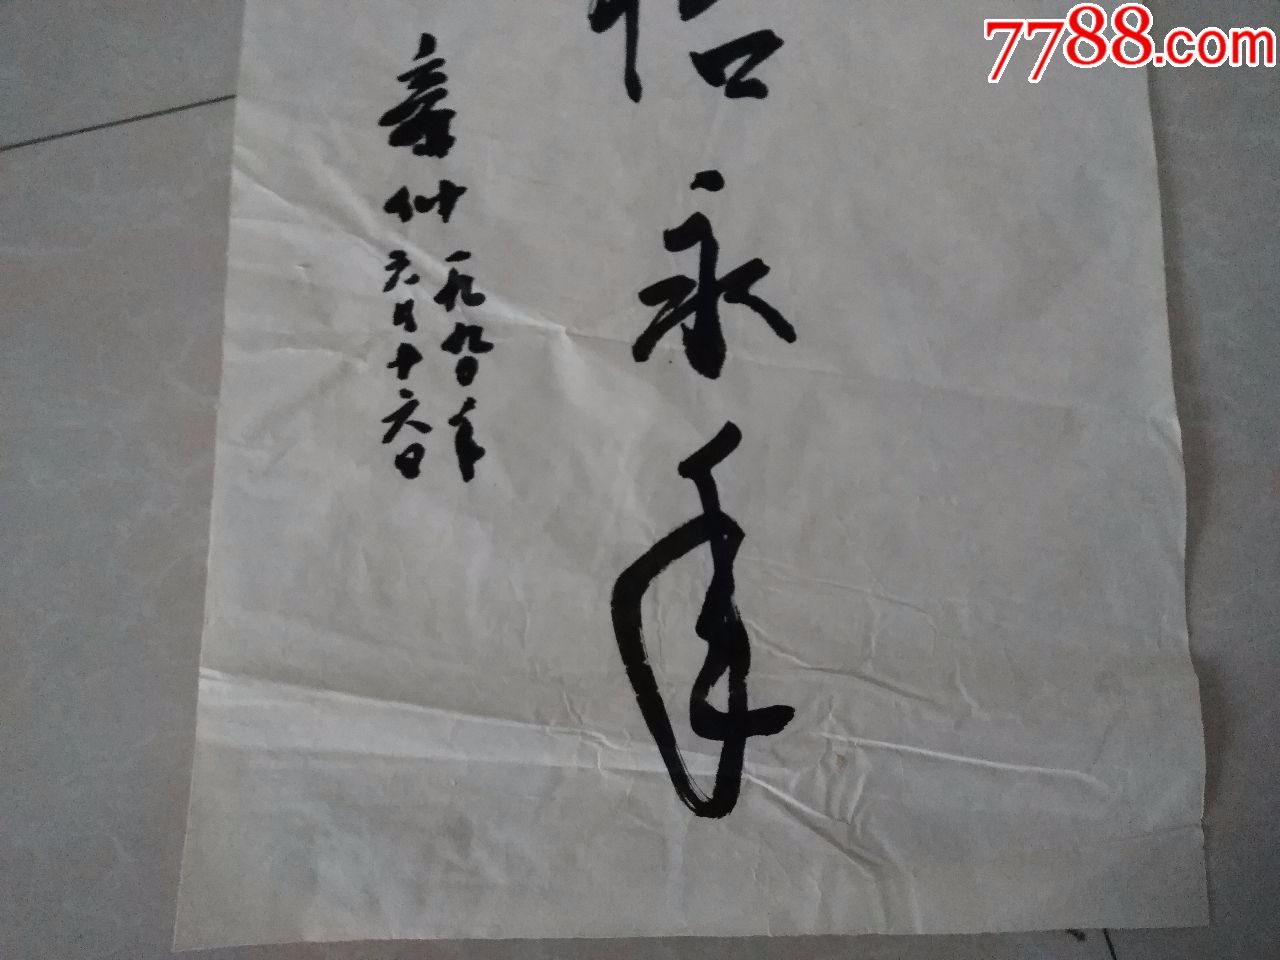 7788.com
怡永年
章仲
一九九〇年
六月十六日